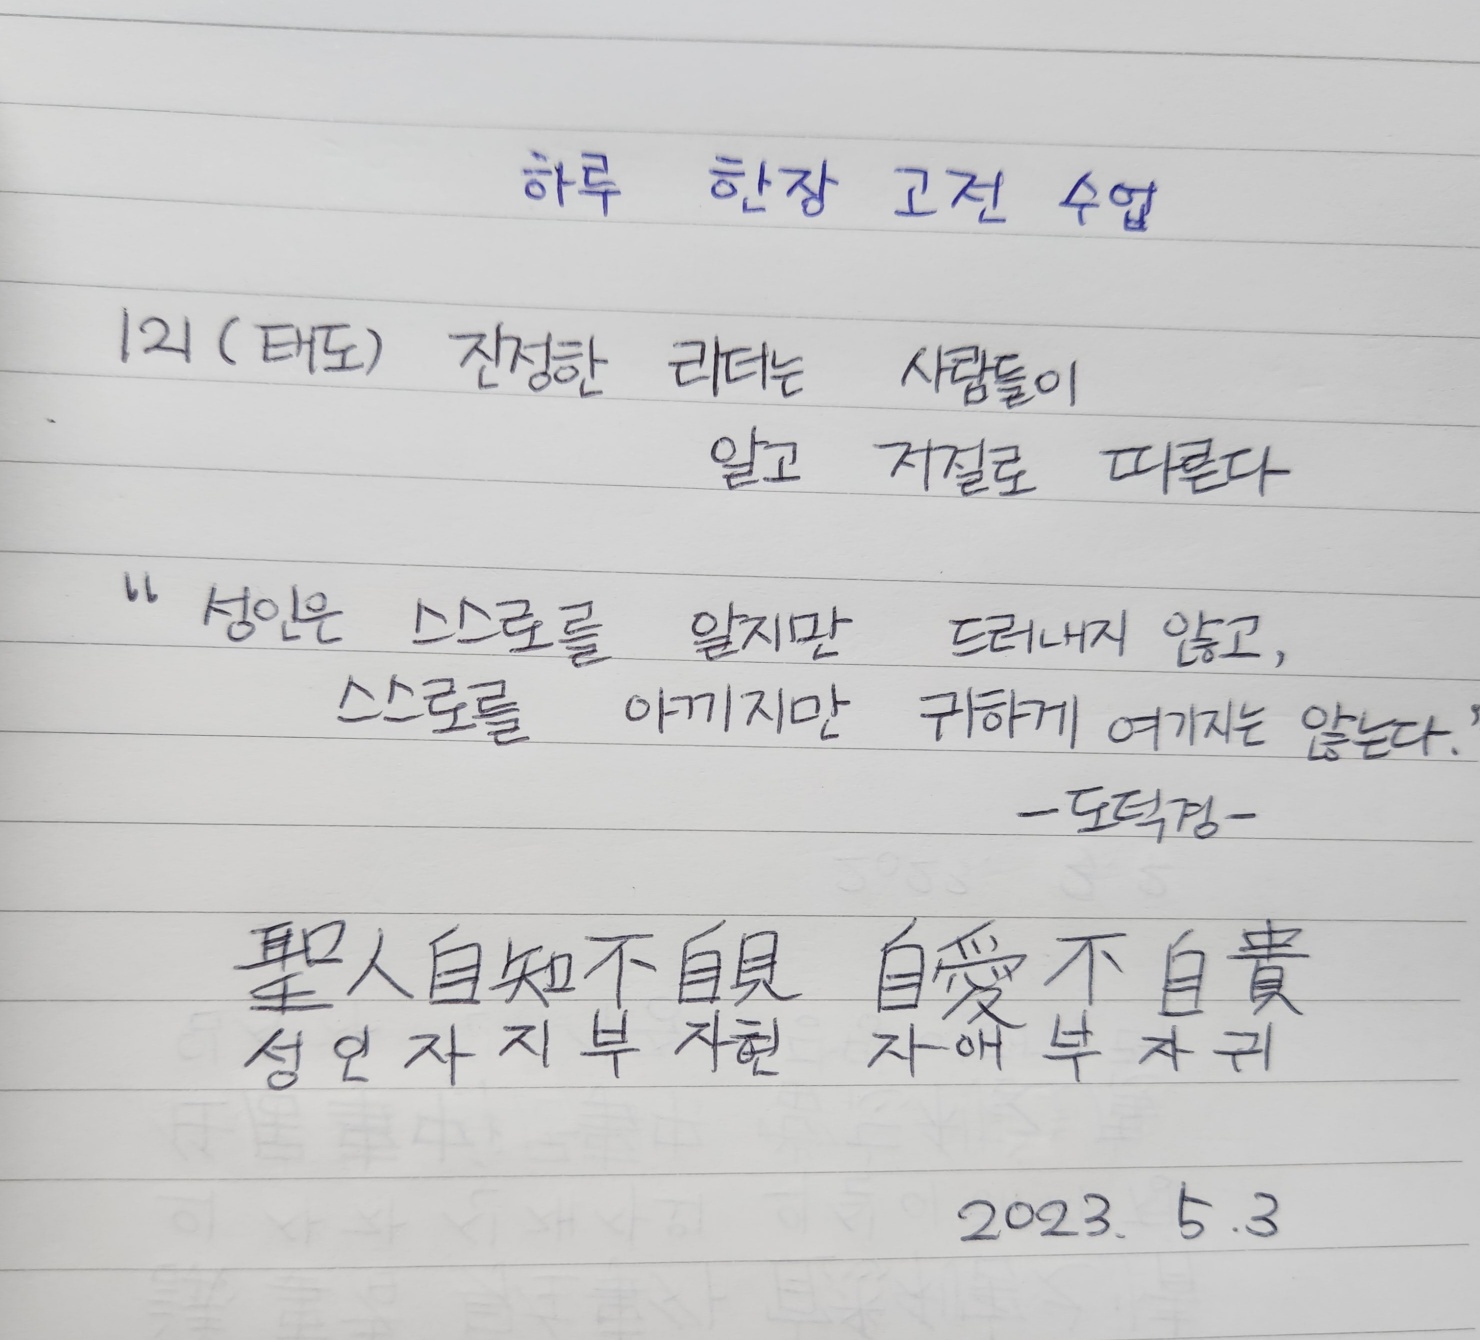 하루 한장 고전 수업
121 (태도) 진정한 리더는 사람들이
알고 저절로 따른다
“ 성인은 스스로를 알지만 드러내지 않고,
스스로를 아끼지만 귀하게 여기지는 않는다.”
-도덕경-
聖人自知不自見 自愛不自貴
성인자지부자현 자애부자귀
2023. 5.3